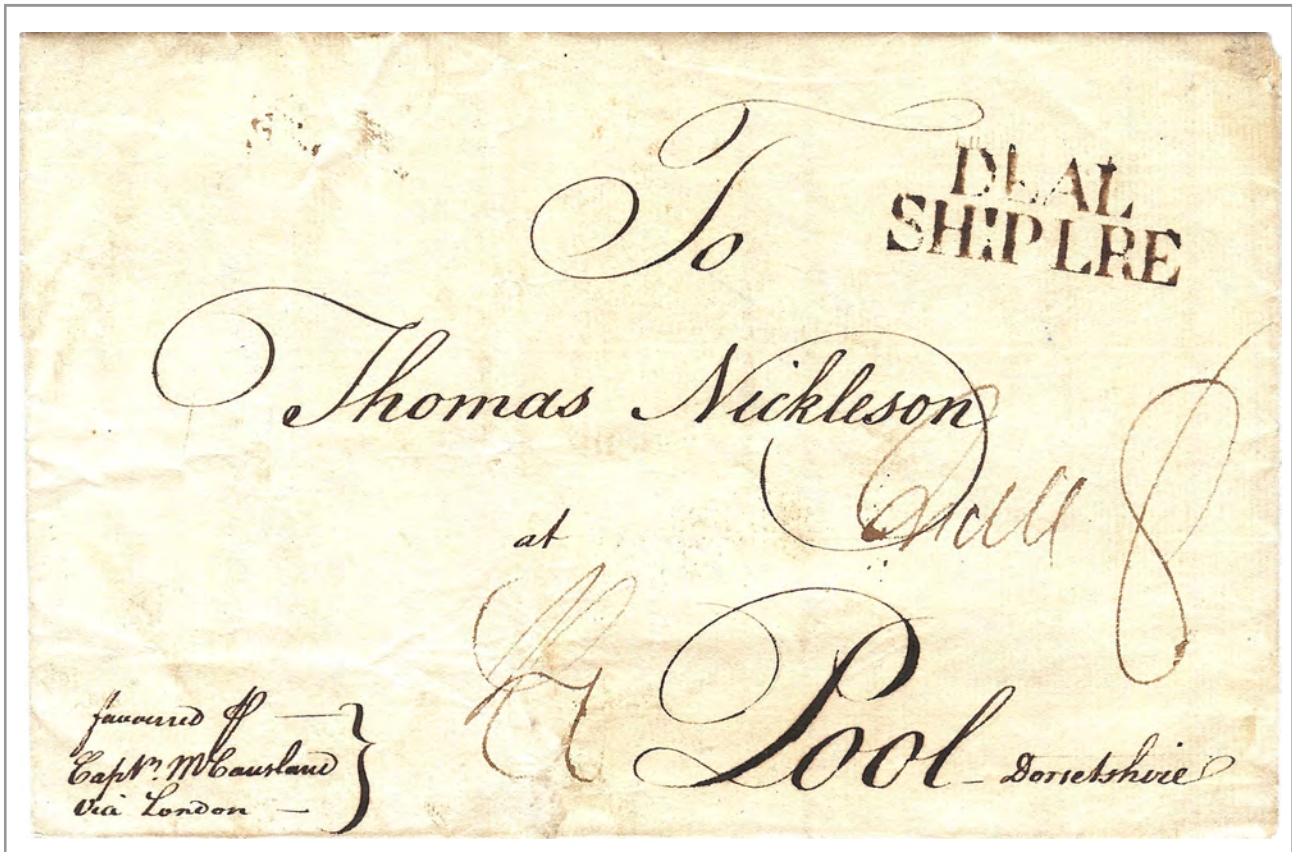 To
DEAL
SHIP LRE
Thomas Nickleson
at
8
Pool - Dorsetshire
favoured ⅌
Captn. McCausland
via London